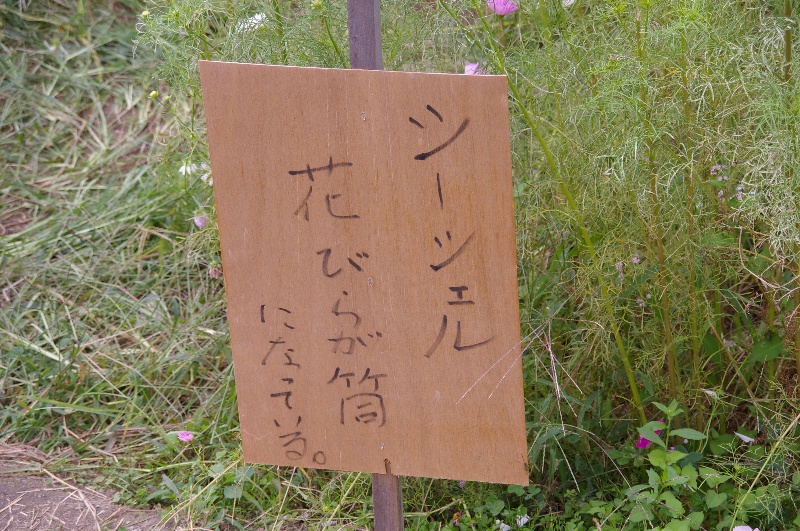 シーシェル
花びらが筒
になっている。